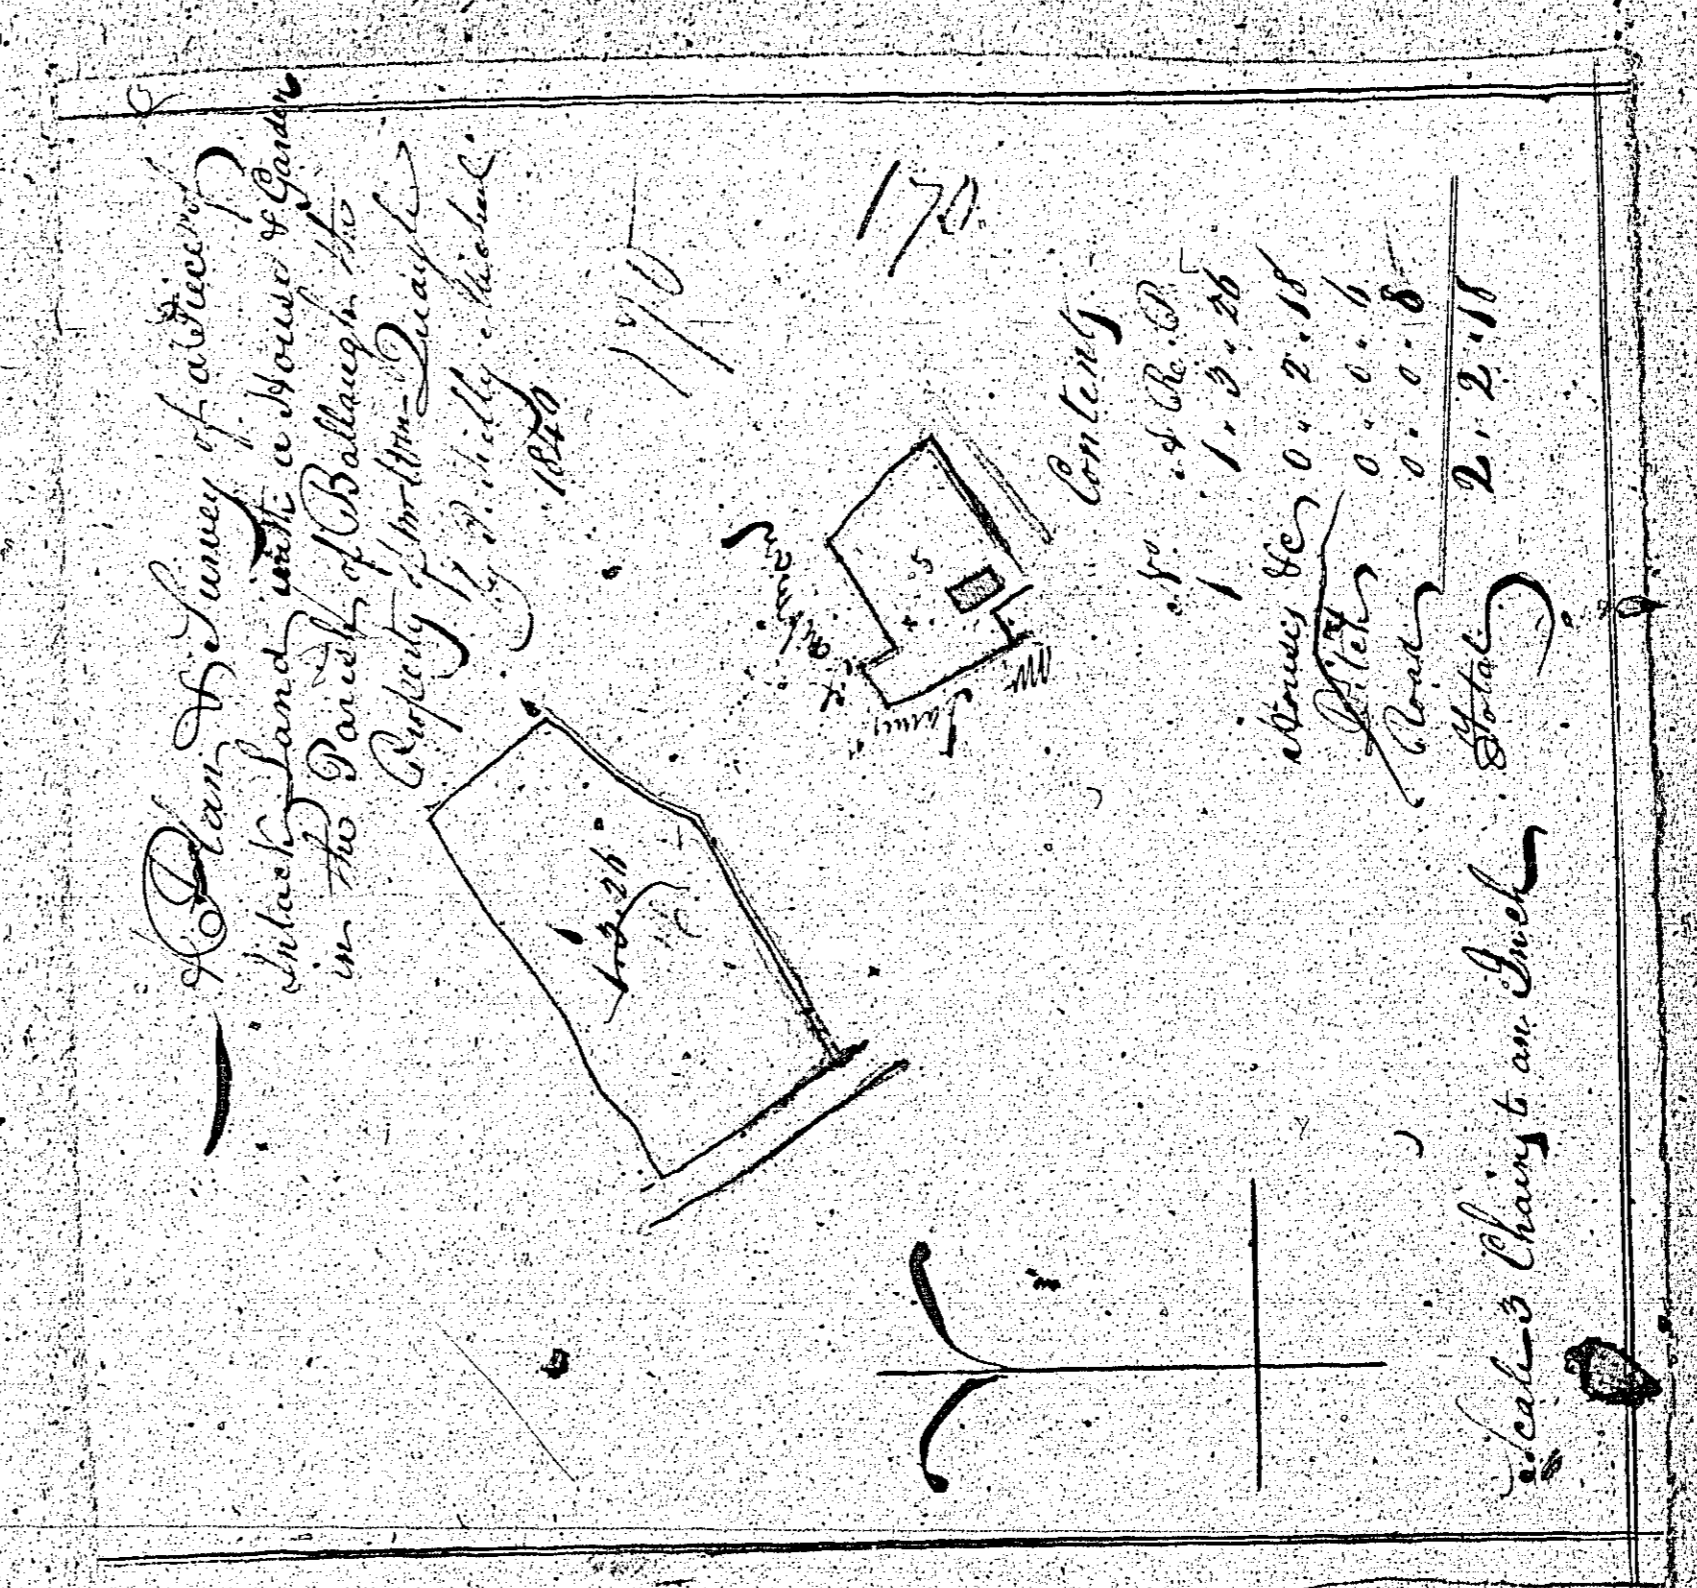 A Plan & Survey of a Piece of
Intack Land with a House & Garden
in the Parish of Ballaugh the
Property of
Quayle
by P. Killy Michael
1840
170
170
1
1.3.26
James
Contents
No. A. Ro. P.
1 1 .. 3 .. 26
Houses &c 0 .. 2 .. 18
Ditch 0 .. 0 .. 6
Road 0 .. 0 .. 8
Total 2 .. 2 .. 18
Scale 3 Chains to an Inch